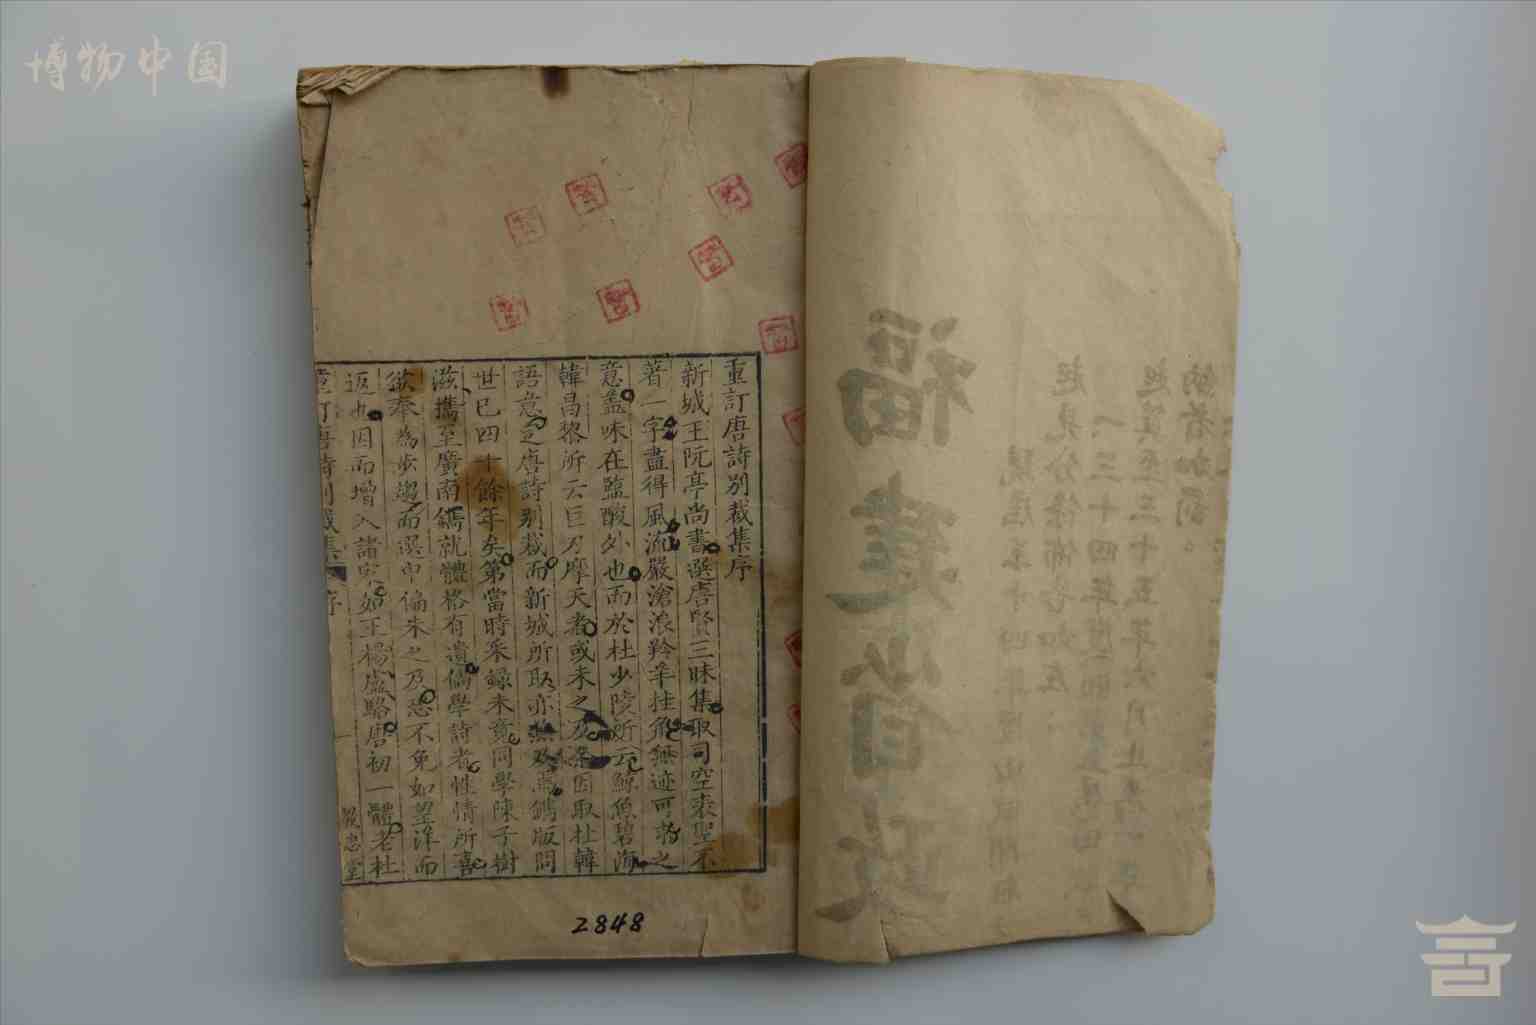 博物中国
重訂唐詩別裁集序
新城王阮亭尚書選唐賢三昧集取司空表聖不
著一字盡得風流嚴滄浪羚羊挂角無迹可求之
意蓋味在鹽酸外也而於杜少陵所云鯨魚碧海
韓昌黎所云巨刃摩天者或未之及余因取杜韓
語意定唐詩別裁而新城所取亦兼及焉鐫版問
世已四十餘年矣第當時采錄未竟同學陳子樹
滋攜至廣南鐫就體格有遺倘學詩者性情所喜
欲奉為步趨而選中偏未之及恐不免如望洋而
返也因而增入諸家如王楊盧駱唐初一體老杜
重訂唐詩別裁集 序
教忠堂
2848
福建省政
起見分條佈告如左
一三十四年度
起箕至三十五年六月止
納者加罰。